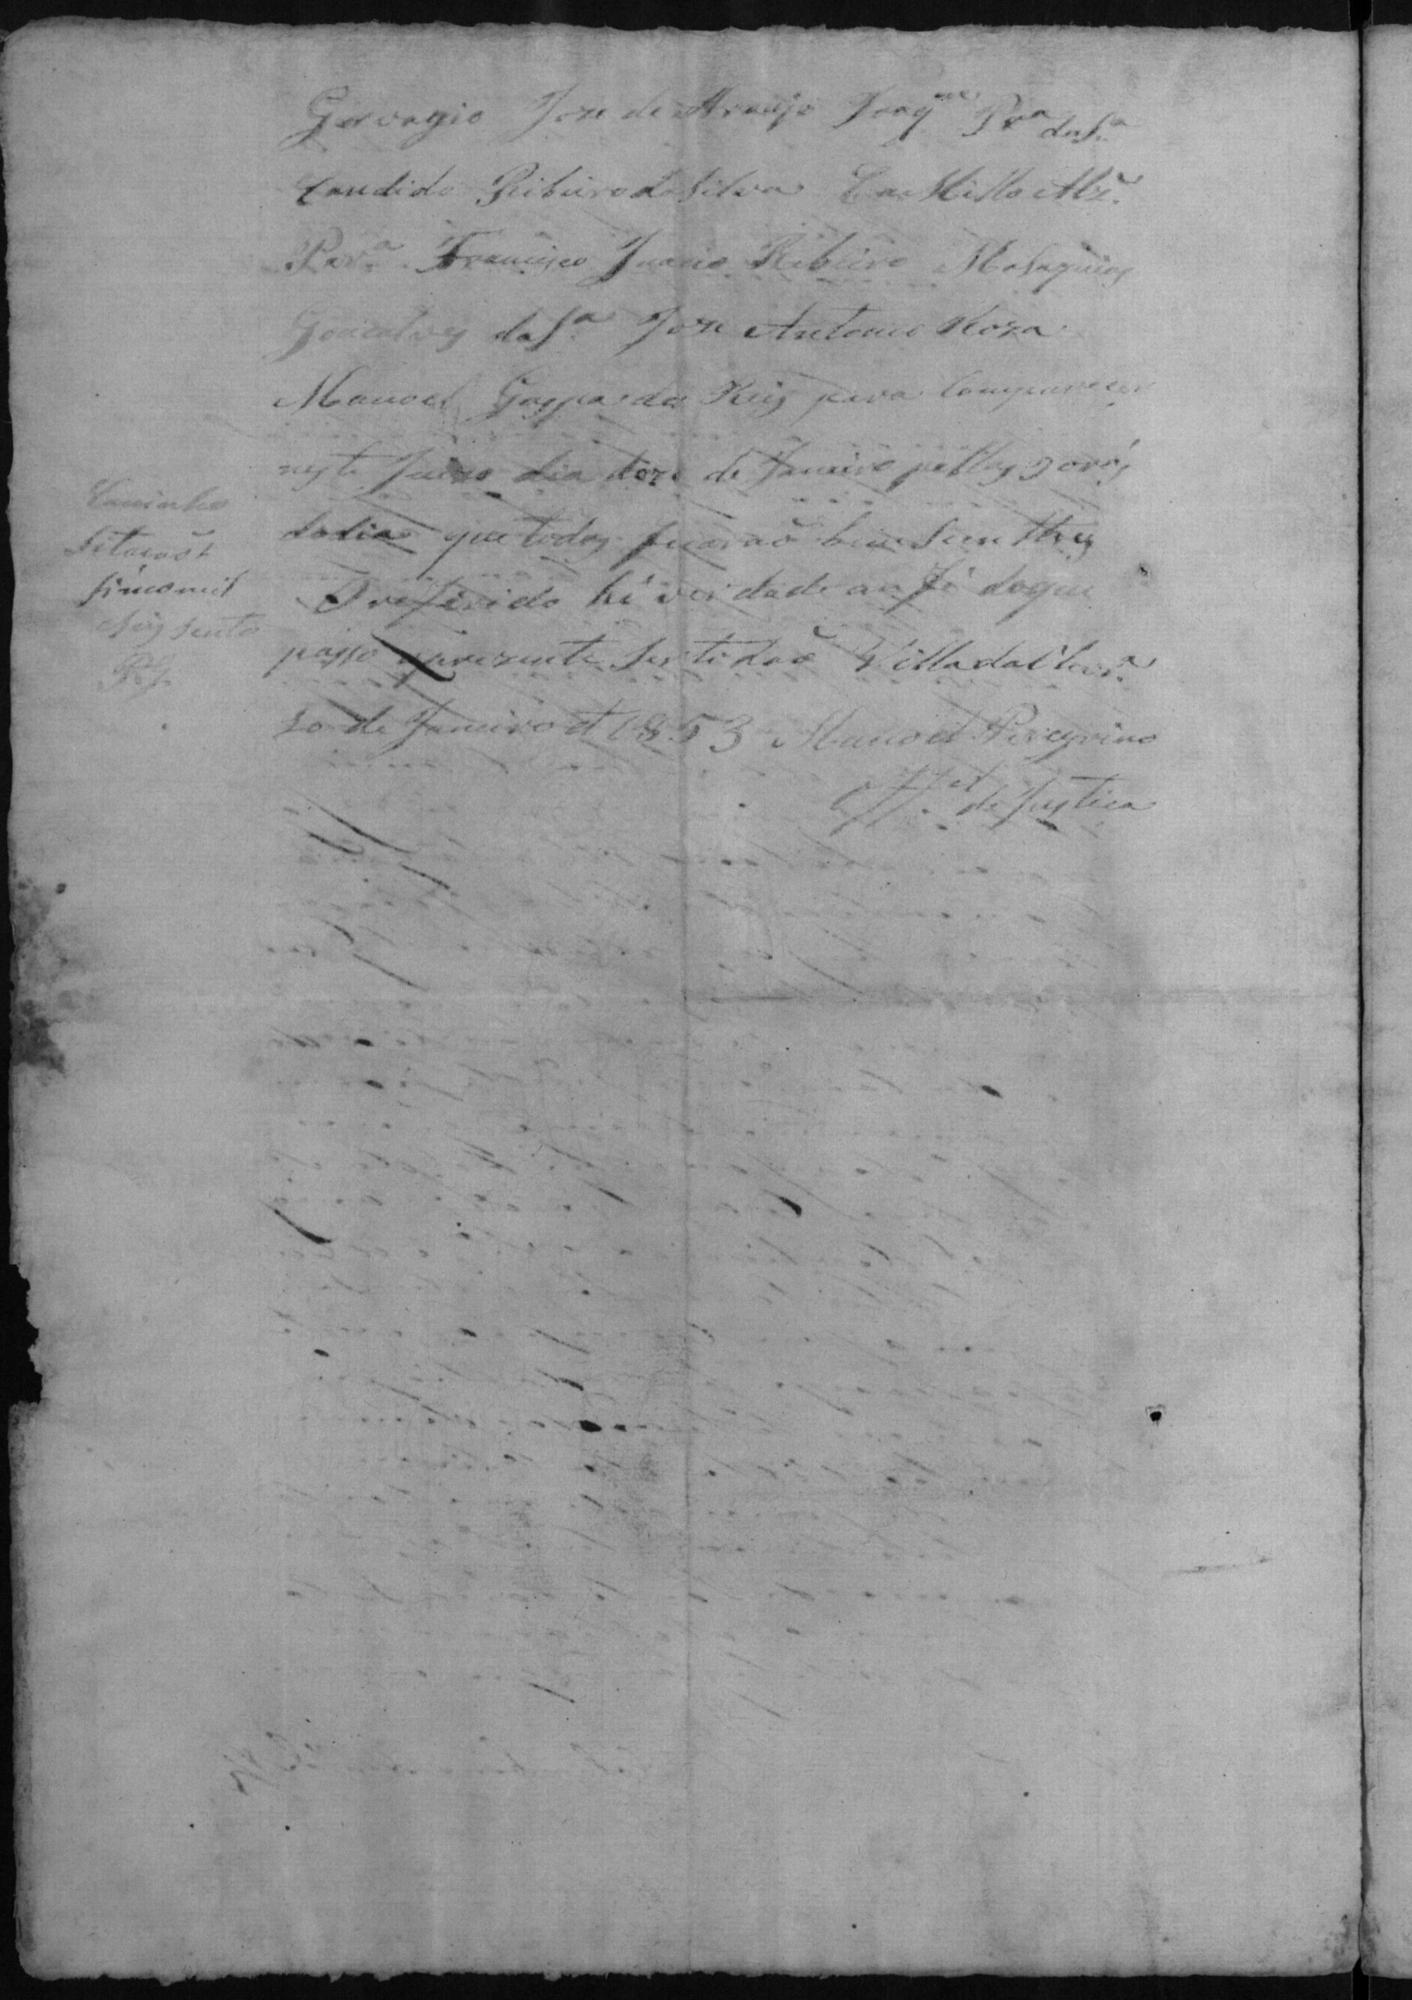 Gervagio Joze de Araujo Joaqm Pra da Sa
Candido Ribeiro da Silva Camillo Alz.
Perra Francisco Ignacio Ribeiro Malaquias
Goncalves da Sa Joze Antonio Roza
Manoel Gaspar dos Reis para Comparecer
neste Juizo dia doze de Janeiro pellas 9 oras
do dia que todos ficarão bem sientes
O referido hé verdade em fé do que
passo aprezente Sertidaõ Villa da
10 de Janeiro d 1853 Manoel Peregrino
Offel de Justica
Caminho
Sitacaõ t
sinco mil
e seis sentos
Rs.